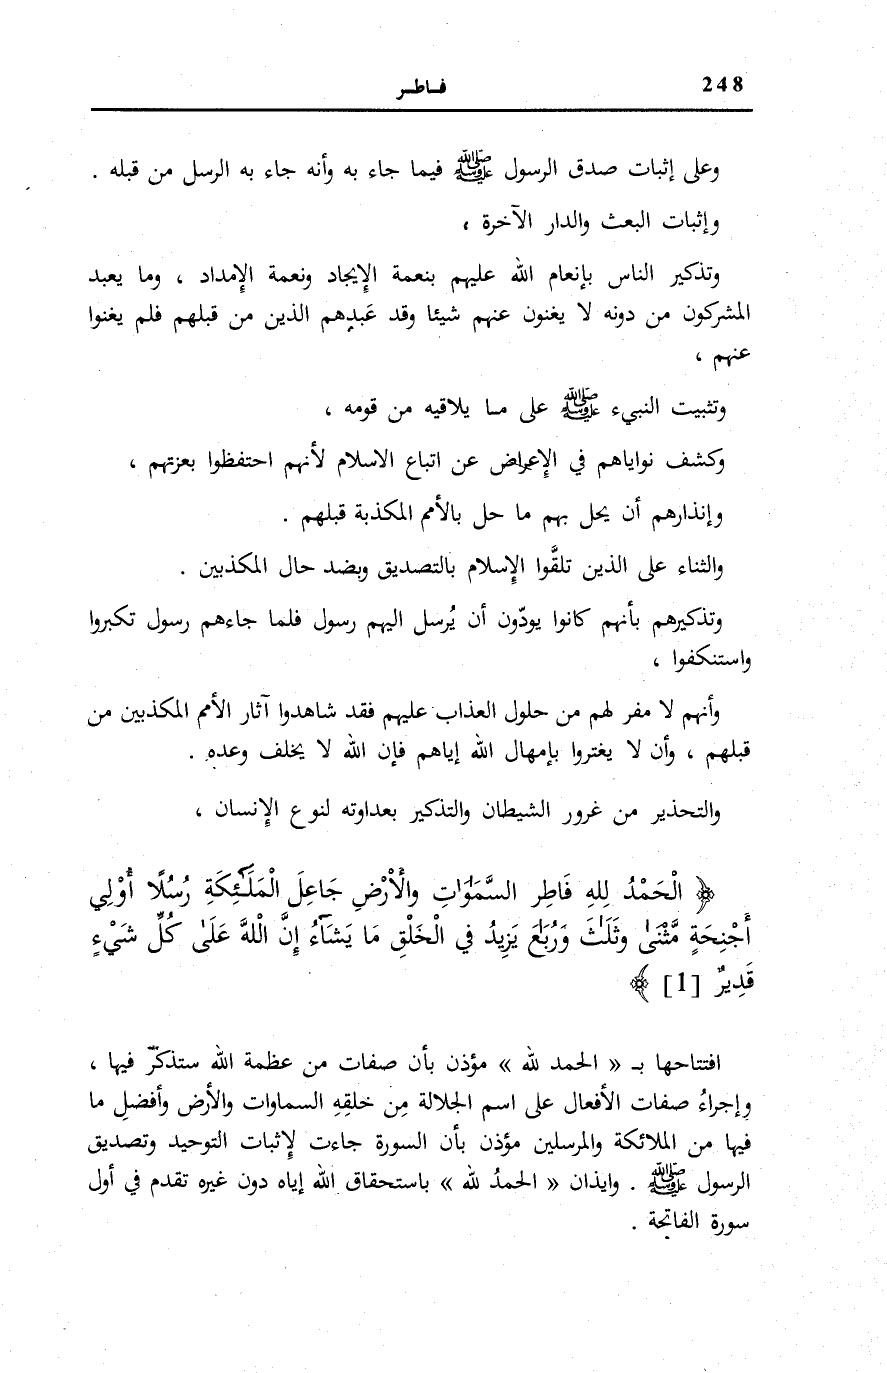 248
فاطر
وعلى إثبات صدق الرسول ﷺ فيما جاء به وأنه جاء به الرسل من قبله .
وإثبات البعث والدار الآخرة ،
وتذكير الناس بإنعام الله عليهم بنعمة الإيجاد ونعمة الإمداد ، وما يعبد
المشركون من دونه لا يغنون عنهم شيئا وقد عَبدهم الذين من قبلهم فلم يغنوا
عنهم ،
وتثبيت النبيء ﷺ على ما يلاقيه من قومه ،
وكشف نواياهم في الإعراض عن اتباع الاسلام لأنهم احتفظوا بعزتهم ،
وإنذارهم أن يحل بهم ما حل بالأمم المكذبة قبلهم .
والثناء على الذين تلقَّوا الإسلام بالتصديق وبضد حال المكذبين .
وتذكيرهم بأنهم كانوا يودّون أن يُرسل اليهم رسول فلما جاءهم رسول تكبروا
واستنكفوا ،
وأنهم لا مفر لهم من حلول العذاب عليهم فقد شاهدوا آثار الأمم المكذبين من
قبلهم ، وأن لا يغتروا بإمهال الله إياهم فإن الله لا يخلف وعده .
والتحذير من غرور الشيطان والتذكير بعداوته لنوع الإنسان ،
﴿ الْحَمْدُ لِلهِ فَاطِر السَّمَٰوَٰتِ والْأَرْضِ جَاعِلَ الْمَلَٰٓئِكَةِ رُسُلًا أُوْلِي
أَجْنِحَةٍ مَّثْنَىٰ وثَلَٰثَ وَرُبَٰعَ يَزِيدُ في الْخَلْقِ مَا يَشَآءُ إِنَّ اللهَ عَلَىٰ كُلِّ شَيْءٍ
قَدِيرٌ [1] ﴾
افتتاحها بـ « الحمد لله » مؤذن بأن صفات من عظمة الله ستذكّر فيها ،
وإجراءُ صفات الأفعال على اسم الجلالة مِن خلقِهِ السماوات والأرض وأفضلِ ما
فيها من الملائكة والمرسلين مؤذن بأن السورة جاءت لإثبات التوحيد وتصديق
الرسول ﷺ . وايذان « الحمدُ لله » باستحقاق الله إياه دون غيره تقدم في أول
سورة الفاتحة .